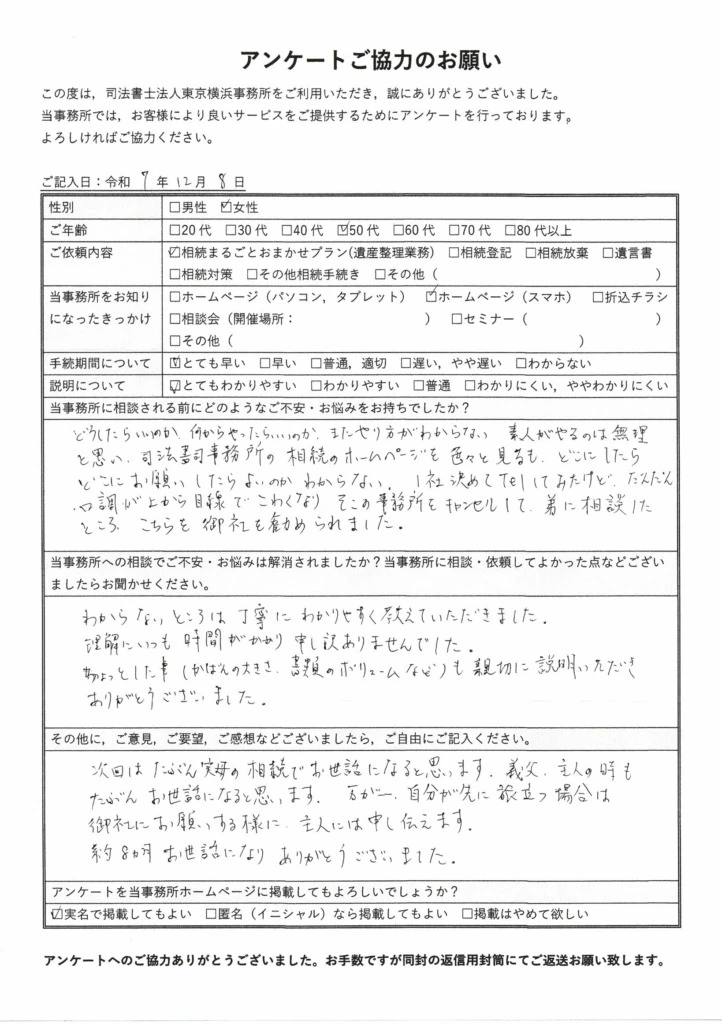 アンケートご協力のお願い
この度は，司法書士法人東京横浜事務所をご利用いただき，誠にありがとうございました。
当事務所では，お客様により良いサービスをご提供するためにアンケートを行っております。
よろしければご協力ください。
ご記入日：令和 7 年 12 月 8 日
性別 □男性 ☑女性
ご年齢 □20代 □30代 □40代 ☑50代 □60代 □70代 □80代以上
ご依頼内容 ☑相続まるごとおまかせプラン(遺産整理業務) □相続登記 □相続放棄 □遺言書
□相続対策 □その他相続手続き □その他（ ）
当事務所をお知り □ホームページ（パソコン，タブレット） ☑ホームページ（スマホ） □折込チラシ
になったきっかけ □相談会（開催場所： ） □セミナー（ ）
□その他（ ）
手続期間について ☑とても早い □早い □普通，適切 □遅い，やや遅い □わからない
説明について ☑とてもわかりやすい □わかりやすい □普通 □わかりにくい，ややわかりにくい
当事務所に相談される前にどのようなご不安・お悩みをお持ちでしたか？
どうしたらいいのか、何からやったらいいのか、またやり方がわからない 素人がやるのは無理
と思い、司法書司事務所の相続のホームページを色々と見るも、どこにしたら
どこにお願いしたらよいのかわからない。1社決めてTelしてみたけど、だんだん
口調が上から目線でこわくなり そこの事務所をキャンセルして、弟に相談した
ところ、こちらを御社を勧められました。
当事務所への相談でご不安・お悩みは解消されましたか？当事務所に相談・依頼してよかった点などござい
ましたらお聞かせください。
わからないところは丁寧にわかりやすく教えていただきました。
理解にいつも時間がかかり申し訳ありませんでした。
ちょっとした事(かばんの大きさ、書類のボリュームなど)も親切に説明いただき
ありがとうございました。
その他に，ご意見，ご要望，ご感想などございましたら，ご自由にご記入ください。
次回はたぶん実母の相続でお世話になると思います。義父、主人の時も
たぶんお世話になると思います。万が一、自分が先に旅立つ場合は
御社にお願いする様に、主人には申し伝えます。
約8ヵ月お世話になりありがとうございました。
アンケートを当事務所ホームページに掲載してもよろしいでしょうか？
☑実名で掲載してもよい □匿名（イニシャル）なら掲載してもよい □掲載はやめて欲しい
アンケートへのご協力ありがとうございました。お手数ですが同封の返信用封筒にてご返送お願い致します。